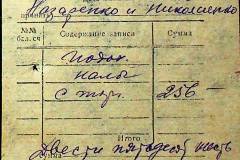 Назаренко и Николаенко
№№ бал. сч. Содержание записи Сумма
Подох.
налог
с тур. 256 -
Итого
Сумма
Двести пятьдесят шесть